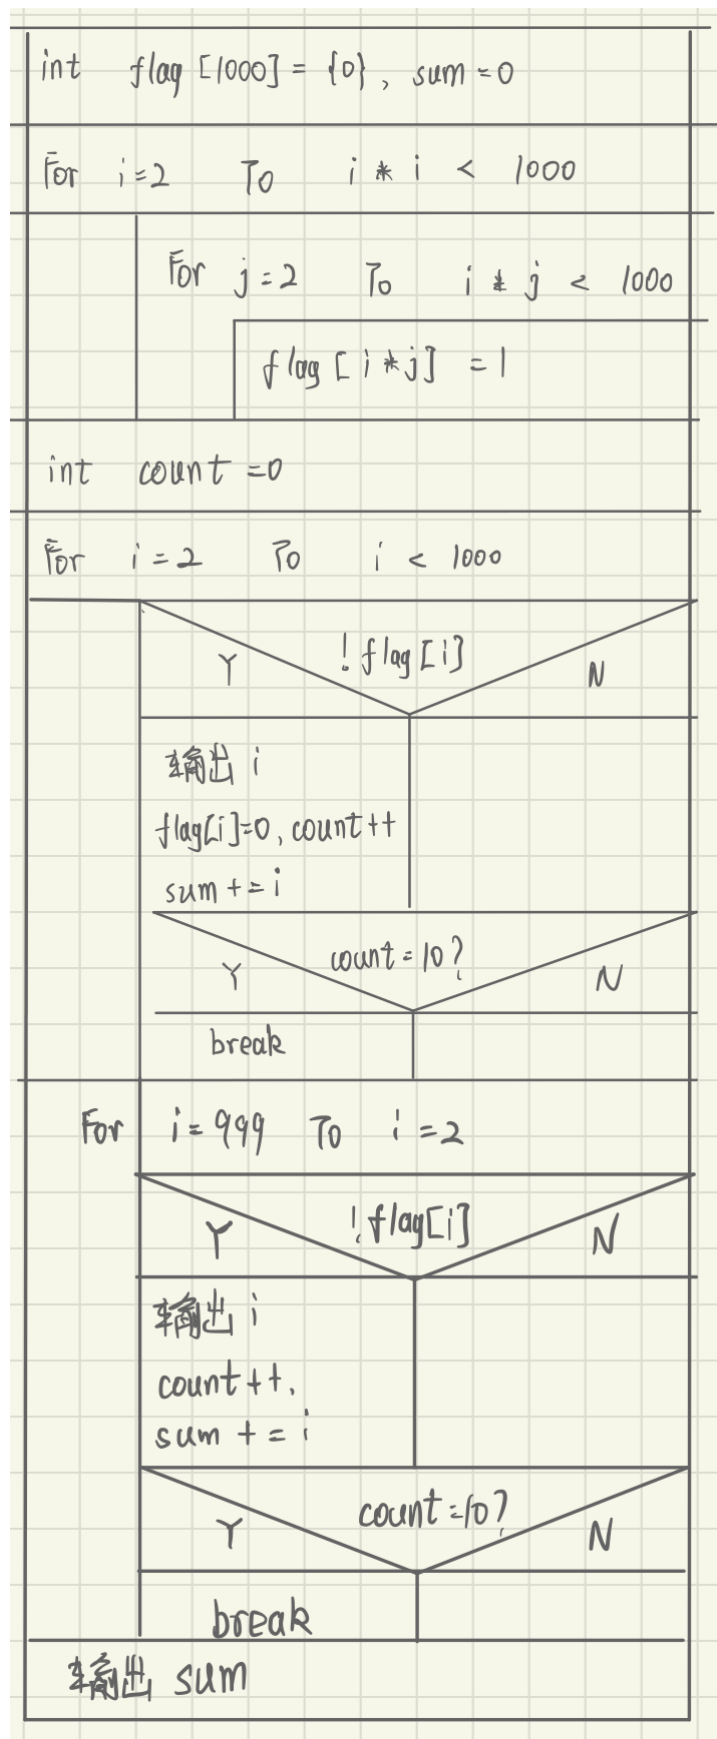 int flag [1000] = {0}, sum = 0
For i=2 To i * i < 1000
For j=2 To i * j < 1000
flag [i*j] = 1
int count =0
For i=2 To i < 1000
Y !flag[i] N
输出 i
flag[i]=0, count++
sum += i
Y count=10? N
break
For i=999 To i=2
Y !flag[i] N
输出 i
count++,
sum += i
Y count=10? N
break
输出 sum